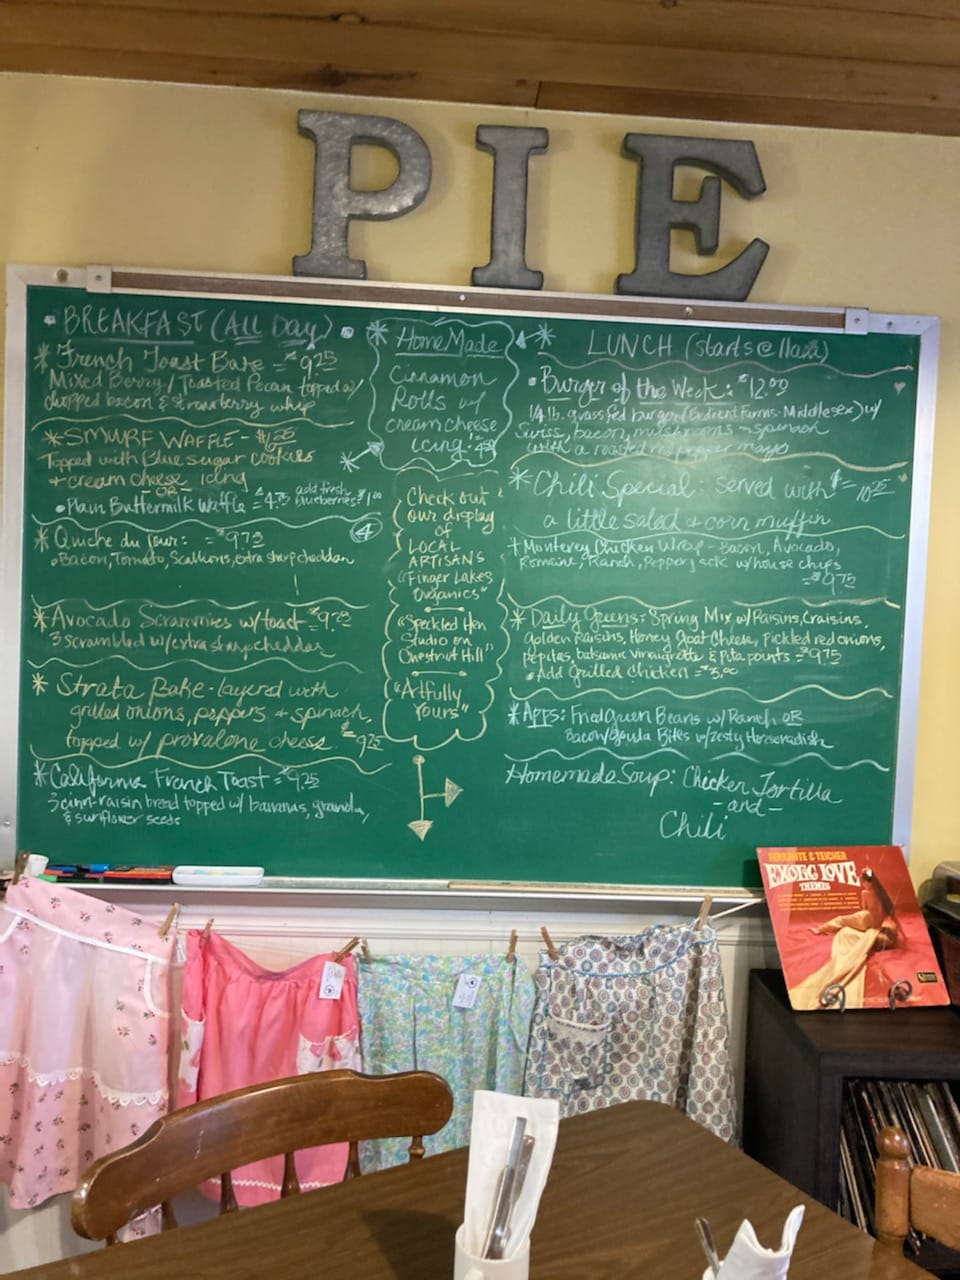 PIE
BREAKFAST (All Day)
* French Toast Bake = $9.25
Mixed Berry/Toasted Pecan topped w/
chopped bacon & strawberry whip
* SMURF WAFFLE -
Topped with Blue sugar cookies
+ cream cheese icing
- OR -
• Plain Buttermilk Waffle = $4.75 add fresh blueberries $1.00
* Quiche du jour: = $9.75
4
• Bacon, Tomato, Scallions, extra sharp cheddar
* Avocado Scrammies w/toast = $9.25
3 scrambled w/extra sharp cheddar
* Strata Bake - layered with
grilled onions, peppers + spinach,
topped w/ provalone cheese = $9.25
* California French Toast = $9.25
3 cinn-raisin bread topped w/ bananas, granola,
& sunflower seeds
* HomeMade
Cinnamon
Rolls w/
cream cheese
icing:
Check out
our display
of
LOCAL
ARTISANS
"Finger Lakes
Organics"
"Speckled Hen
Studio on
Chestnut Hill"
"Artfully
Yours"
* LUNCH (starts @ 11am)
• Burger of the Week: $12.00
1/4 lb. grassfed burger (Bedient Farms - Middlesex) w/
Swiss, bacon, mushrooms + spinach
with a roasted red pepper mayo
* Chili Special: served with = $10.25
a little salad + corn muffin
* Monterey Chicken Wrap - Bacon, Avocado,
Romaine, Ranch, Pepperjack w/house chips
= $9.75
* Daily Greens: Spring Mix w/Raisins, Craisins,
golden Raisins, Honey Goat Cheese, pickled red onions,
pepitas, balsamic vinaigrette & Pita points = $9.75
• Add Grilled Chicken = $3.00
* Apps: Fried Green Beans w/Ranch OR
Bacon/Gouda Bites w/Zesty Horseradish
Homemade Soup: Chicken Tortilla
- and -
Chili
FERRANTE & TEICHER
EXOTIC LOVE
THEMES